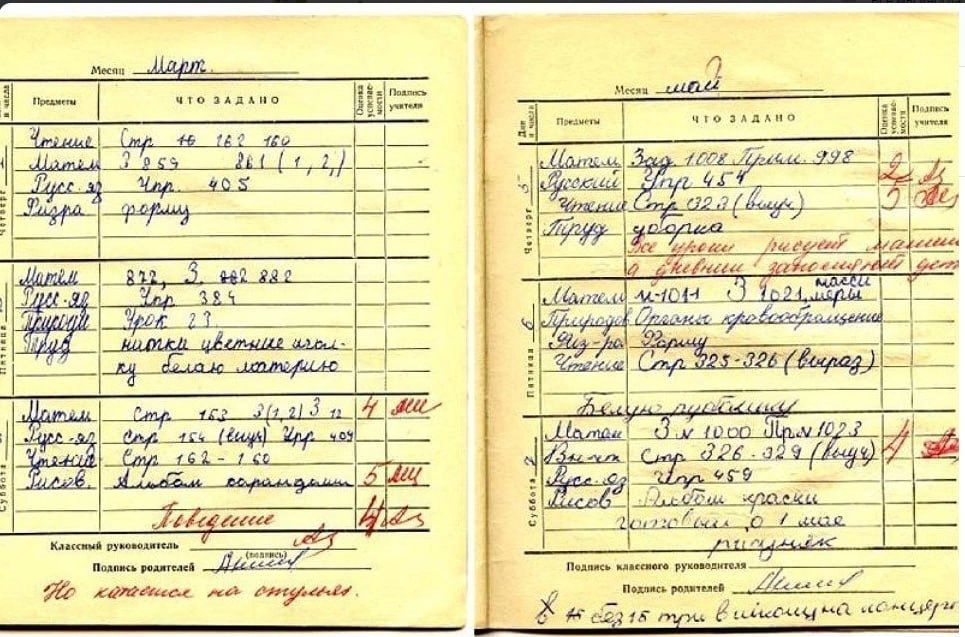 Месяц Март.
Дни и числа
Предметы
ЧТО ЗАДАНО
Оценка успеваемости
Подпись учителя
Четверг
Чтение Стр 162 160
Матем З 259 861 (1, 2,)
Русс-яз Упр. 405
Физра форму
Пятница
Матем 872, З. 882
Русс-яз Упр 384
Природ Урок 23
Труд нитки цветные игол-
ку белаю материю
Суббота
Матем Стр 153 3(1,2) З 12 4
Русс-яз стр 154 (выуч) Упр 404
Чтение Стр 162-160
Рисов. Альбом карандаши 5
Поведение 4
Классный руководитель
(подпись)
Подпись родителей
Но катается на стульях.
Месяц май
Дни и числа
Предметы
ЧТО ЗАДАНО
Оценка успеваемости
Подпись учителя
Четверг 5
Матем Зад. 1008 Прим. 998 2
Русский Упр 454 5
Чтение Стр 323 (выуч)
Труд уборка
Все уроки рисует
а дневник заполняет
Пятница 6
Матем N-1011 З 1021, массы меры
Природов Органы кровообращение
Физ-ра Форму
Чтение Стр 325-326 (выраз)
Белую рубашку
Суббота
Матем З N 1000 Пр.N 1023 4
Вн-чт Стр 326-329 (выуч)
Русс-яз Упр 459
Рисов Альбом краски
готовый о 1 мае
Подпись классного руководителя
Подпись родителей
В без 15 три в школу на